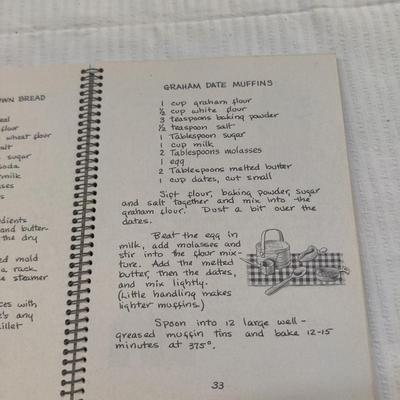 WN BREAD
eal
flour
wheat flour
alt
sugar
soda
rmilk
sses
s
dients
and butter-
the dry
d mold
a rack
e steamer
ces with
e's any
illet
GRAHAM DATE MUFFINS
1 cup graham flour
1/2 cup white flour
3 teaspoons baking powder
1/2 teaspoon salt
1 Tablespoon sugar
1 cup milk
2 Tablespoons molasses
1 egg
2 Tablespoons melted butter
1 cup dates, cut small
Sift flour, baking powder, sugar
and salt together and mix into the
graham flour. Dust a bit over the
dates.
Beat the egg in
milk, add molasses and
stir into the flour mix-
ture. Add the melted
butter, then the dates,
and mix lightly.
(Little handling makes
lighter muffins.)
Spoon into 12 large well-
greased muffin tins and bake 12-15
minutes at 375°.
33